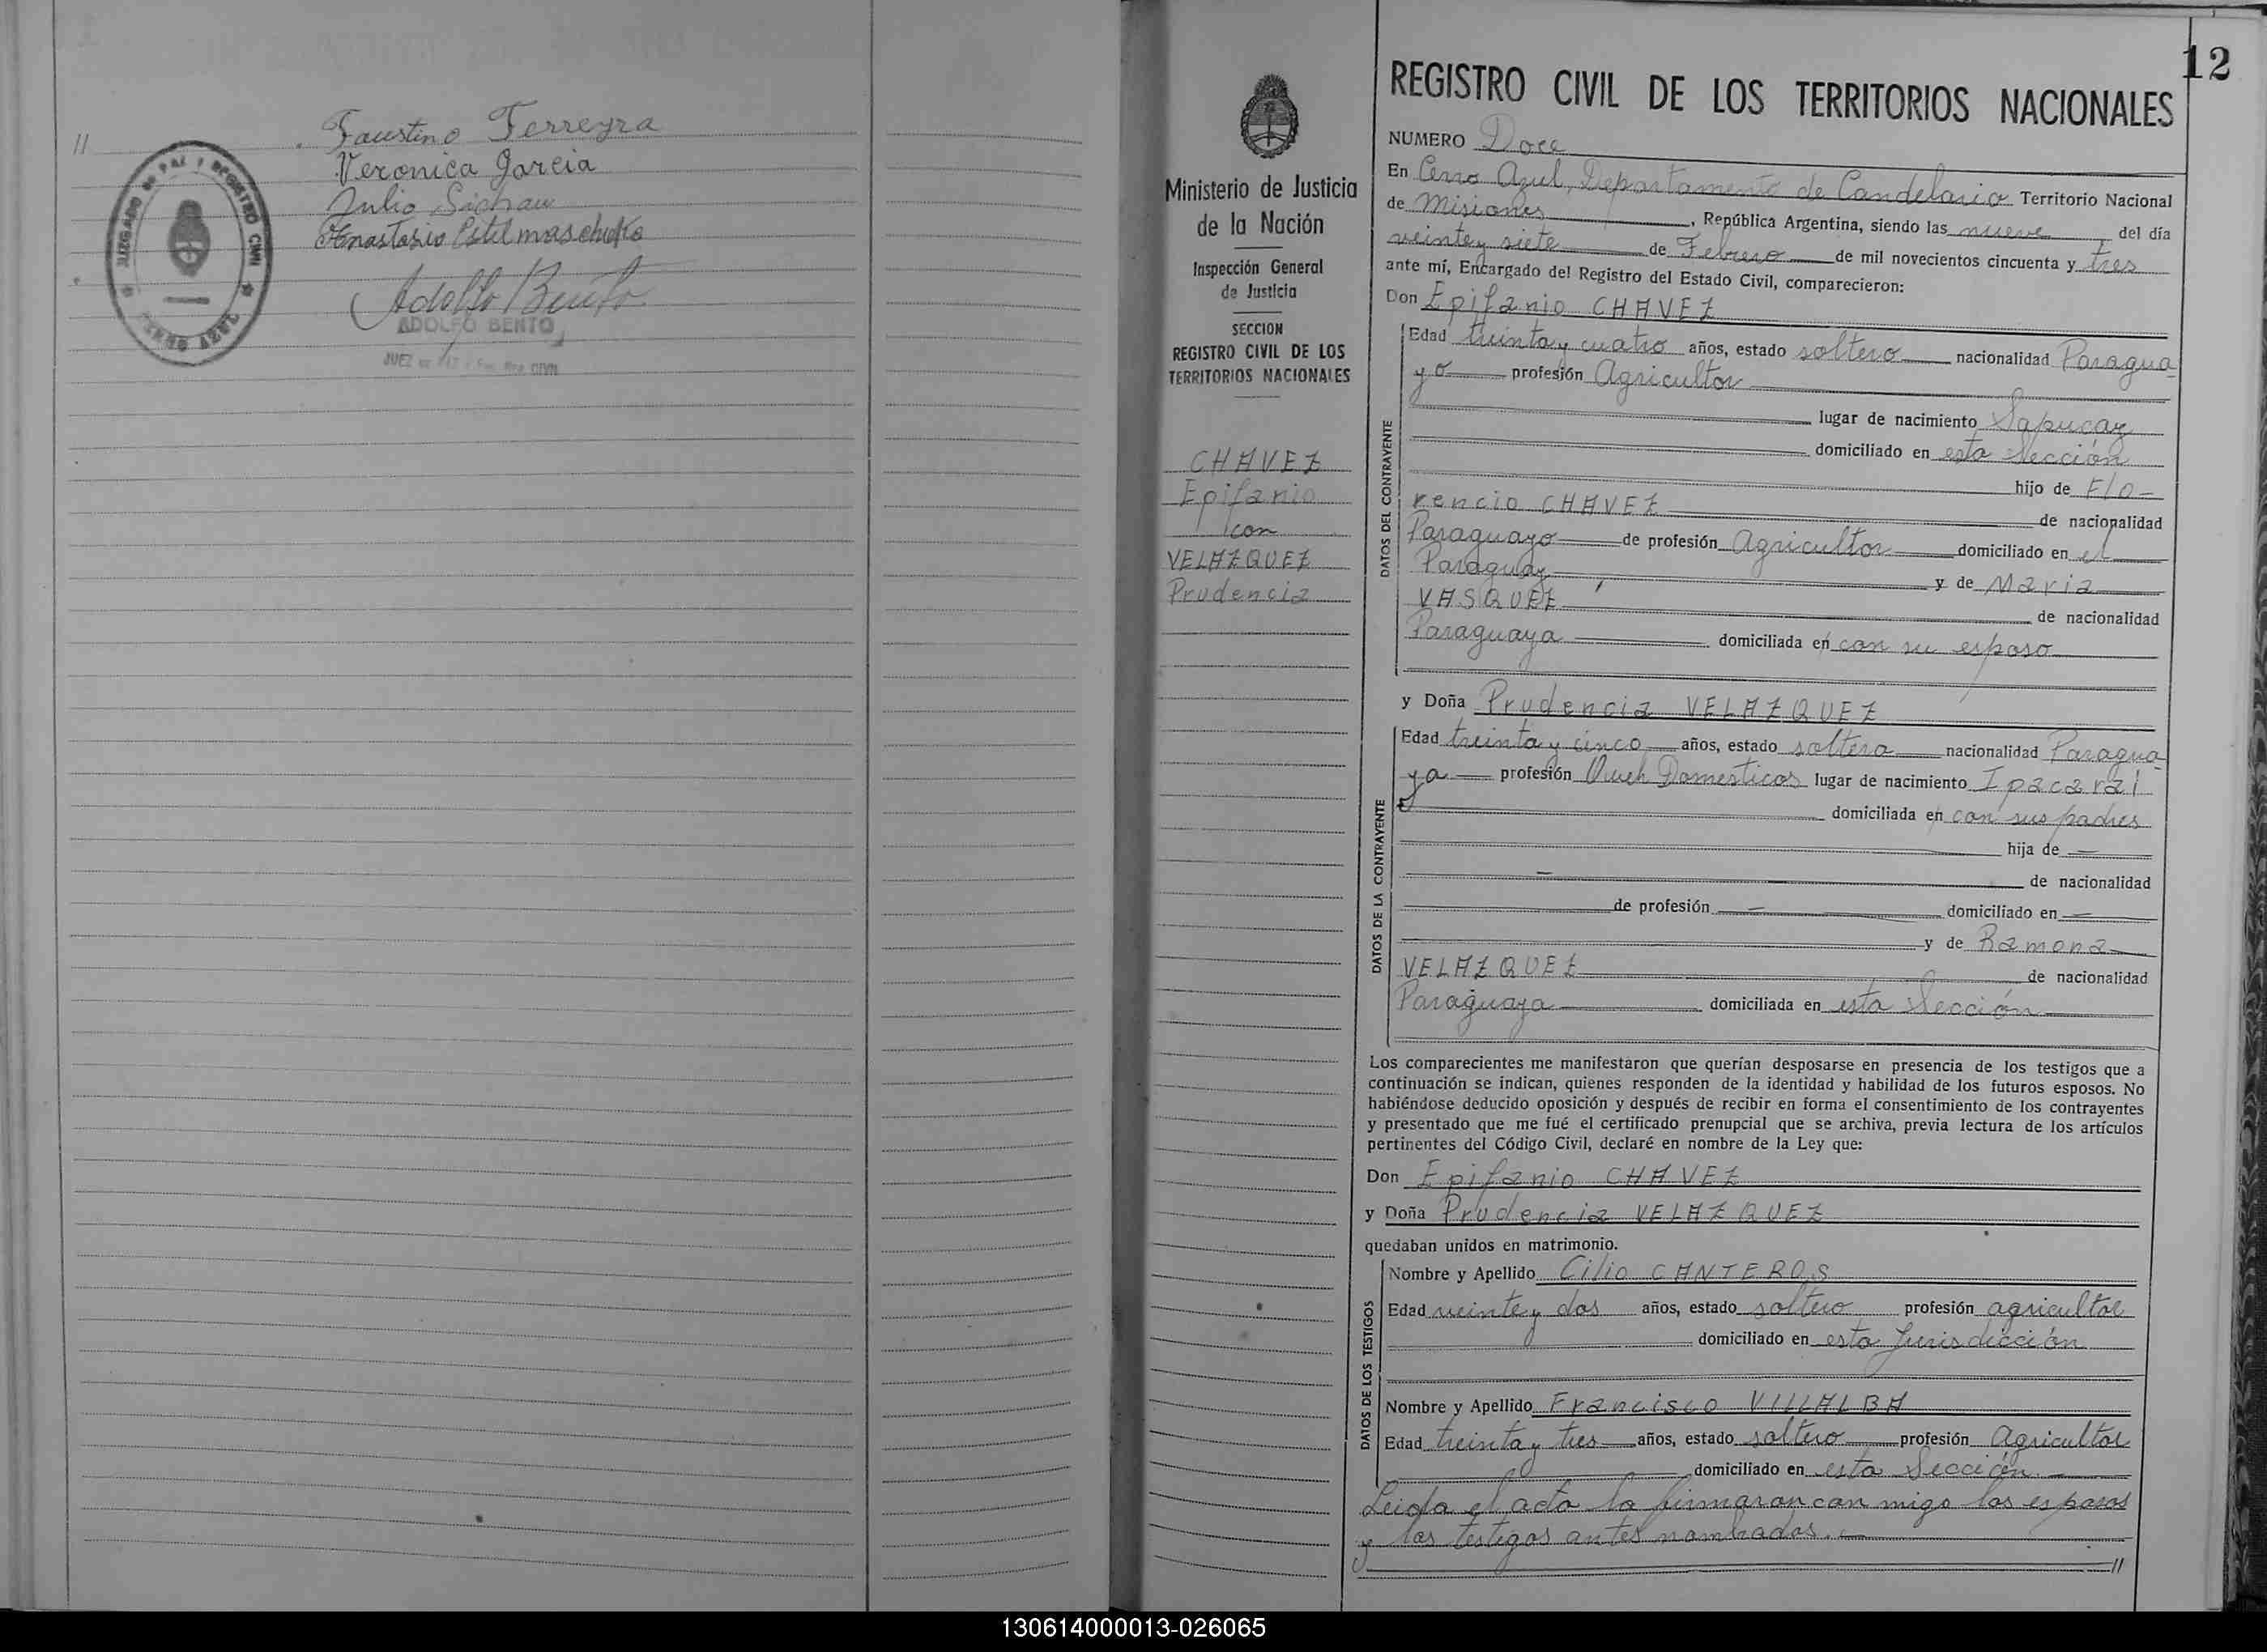 // Faustino Ferreyra
Veronica Garcia
Julio Sichau
Anastasio
JUZGADO DE PAZ Y REGISTRO CIVIL
CERRO AZUL
Adolfo Bento
ADOLFO BENTO
JUEZ DE PAZ Enc. Reg. CIVIL
12
Ministerio de Justicia
de la Nación
Inspección General
de Justicia
SECCION
REGISTRO CIVIL DE LOS
TERRITORIOS NACIONALES
CHAVEZ
Epifanio
con
VELAZQUEZ
Prudencia
REGISTRO CIVIL DE LOS TERRITORIOS NACIONALES
NUMERO Doce
En Cerro Azul, Departamento de Candelaria Territorio Nacional
de Misiones, República Argentina, siendo las nueve del día
veinte y siete de Febrero de mil novecientos cincuenta y tres
ante mí, Encargado del Registro del Estado Civil, comparecieron:
Don Epifanio CHAVEZ
DATOS DEL CONTRAYENTE
Edad treinta y cuatro años, estado soltero nacionalidad Paragua-
yo profesión Agricultor
lugar de nacimiento Sapucay
domiciliado en esta Sección
hijo de Flo-
rencio CHAVEZ de nacionalidad
Paraguayo de profesión Agricultor domiciliado en el
Paraguay y de Maria
VASQUEZ de nacionalidad
Paraguaya domiciliada en con su esposo
y Doña Prudencia VELAZQUEZ
DATOS DE LA CONTRAYENTE
Edad treinta y cinco años, estado soltera nacionalidad Paragua-
ya profesión Queh Domesticos lugar de nacimiento Ipacarai
domiciliada en con sus padres
hija de —
— de nacionalidad
de profesión — domiciliado en —
y de Ramona
VELAZQUEZ de nacionalidad
Paraguaya domiciliada en esta Sección
Los comparecientes me manifestaron que querían desposarse en presencia de los testigos que a
continuación se indican, quienes responden de la identidad y habilidad de los futuros esposos. No
habiéndose deducido oposición y después de recibir en forma el consentimiento de los contrayentes
y presentado que me fué el certificado prenupcial que se archiva, previa lectura de los artículos
pertinentes del Código Civil, declaré en nombre de la Ley que:
Don Epifanio CHAVEZ
y Doña Prudencia VELAZQUEZ
quedaban unidos en matrimonio.
DATOS DE LOS TESTIGOS
Nombre y Apellido Cilio CANTEROS
Edad veinte y dos años, estado soltero profesión agricultor
domiciliado en esta Jurisdicción
Nombre y Apellido Francisco VILLALBA
Edad treinta y tres años, estado soltero profesión Agricultor
domiciliado en esta Sección
Leida el acta la firmaron con migo los esposos
y los testigos antes nombrados.
//
130614000013-026065